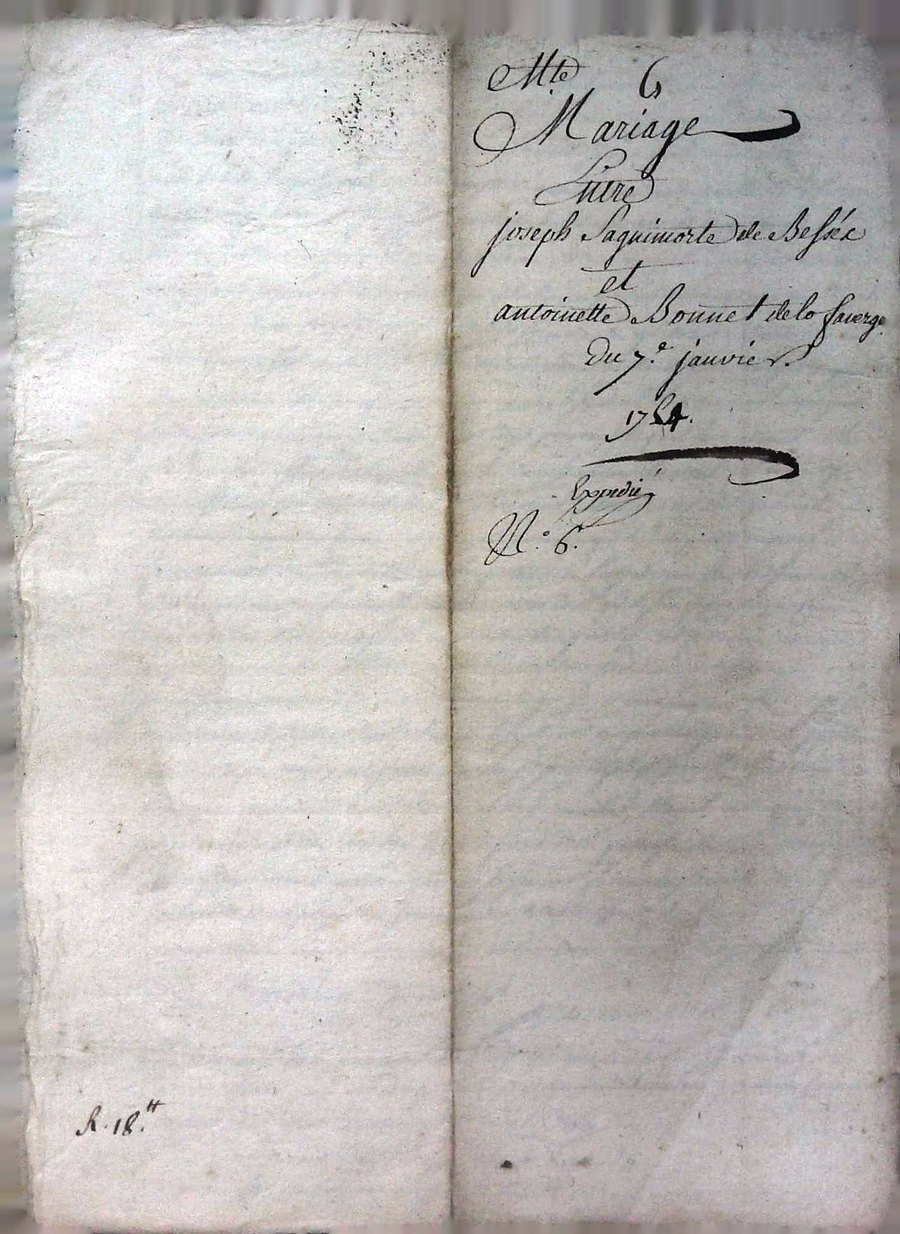 Mte 6
Mariage
Entre
joseph Laguimorte de Bessée
et
antoinette Bonnet de lo faverge
Du 7.e janvier.
1754.
Expedié
N.o 6.
R. 18.tt